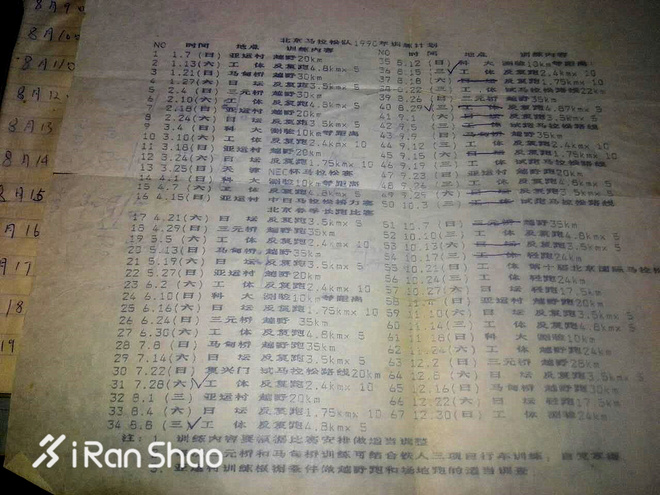 8月90
8月100
8月110
8月12.
8月13
8月14
8月15
月16
月17
18
19
北京马拉松队1990年训练计划
NO 时间 地点 训练内容
1 1.7 (日) 亚运村 越野20km
2 1.13(六) 工 体 反复跑4.8kmx 5
3 1.21(日) 马甸桥 越野30km
4 1.27(六) 日 坛 反复跑3.5kmx 5
5 2.4 (日) 三元桥 越野30km
6 2.10(六) 工 体 反复跑4.8kmx 5
7 2.18(日) 亚运村 越野20km
8 2.24(六) 日 坛 反复跑3.5kmx 5
9 3.4 (日) 科 大 测验10km等距离
10 3.10(六) 工 体 反复跑2.4kmx 10
11 3.18(日) 亚运村 越野20km
12 3.24(六) 日 坛 反复跑1.75kmx 10
13 3.25(日) 天 津 NEC杯马拉松赛
14 4.1 (日) 科 大 测验10km等距离
15 4.7 (六) 工 体 反复跑4.8kmx 5
16 4.15(日) 亚运村 中日马拉松接力赛
北京春季长跑比赛
17 4.21(六) 日 坛 反复跑3.5kmx 5
18 4.29(日) 三元桥 越野35km
19 5.5 (六) 工 体 反复跑2.4kmx 10
20 5.13(日) 马甸桥 越野35km
21 5.19(六) 日 坛 反复跑3.5kmx 5
22 5.27(日) 亚运村 越野20km
23 6.2 (六) 工 体 反复跑2.4kmx 10
24 6.10(日) 科 大 测验10km等距离
25 6.16(六) 日 坛 反复跑1.75kmx 10
26 6.24(日) 三元桥 越野 35km
27 6.30(六) 工 体 反复跑4.8kmx 5
28 7.8 (日) 马甸桥 越野35km
29 7.14(六) 日 坛 反复跑3.5kmx 5
30 7.22(日) 复兴门 试马拉松路线20km
31 7.28(六) 工 体 反复跑2.4kmx 10
32 8.1 (三) 亚运村 越野20km
33 8.4 (六) 日 坛 反复跑1.75kmx 10
34 8.8 (三) 工 体 反复跑4.8kmx 5
NO 时间 地点 训练内容
35 8.12 (日) 科 大 测验10km等距离
36 8.15 (三) 工 体 反复跑2.4kmx 10
37 8.18 (六) 日 坛 反复跑1.75kmx 10
39 8.26 (日) 三元桥 越野35km
40 8.29 (三) 工 体 反复跑4.87kmx 5
41 9.1 (六) 日 坛 反复跑3.5kmx 5
42 9.5 (三) 试跑马拉松路线
43 9.9 (日) 马甸桥 越野35km
44 9.12 (三) 工 体 反复跑2.4kmx 10
45 9.15 (六) 日 坛 反复跑1.75kmx 10
46 9.19 (三) 工 体 试跑马拉松路线
47 9.23 (日) 亚运村 越野20km
48 9.26 (三) 工 体 反复跑4.8kmx 5
50 10.3 (六) 试跑马拉松路线
51 10.7 (日) 三元桥 越野35km
52 10.10(三) 工 体 反复跑4.8kmx 5
53 10.13(六) 日 坛 反复跑3.5kmx 5
工 体 轻跑24km
55 10.21(日) 工 体 第十届北京国际马拉松
56 10.24(三) 工 体 轻跑24km
57 10.27(六) 日 坛 轻跑17.5km
亚运村 越野20km
59 11.10(六) 日 坛 反复跑3.5kmx 5
60 11.14(三) 工 体 反复跑4.8kmx 5
61 11.18(日) 科 大 测验10km
工 体 越野24km
63 12.2 (日) 三元桥 越野28km
64 12.8 (六) 日 坛 反复跑3.5kmx 5
65 12.16(日) 马甸桥 越野30km
66 12.22(六) 日 坛 轻跑17.5km
67 12.30(日) 工 体 测验24km
注: 训练内容要根据比赛安排做适当调整
三元桥和马甸桥训练可结合铁人三项自行车训练, 自
亚运村训练根据条件做越野跑和场地跑的适当调整
iRanShao